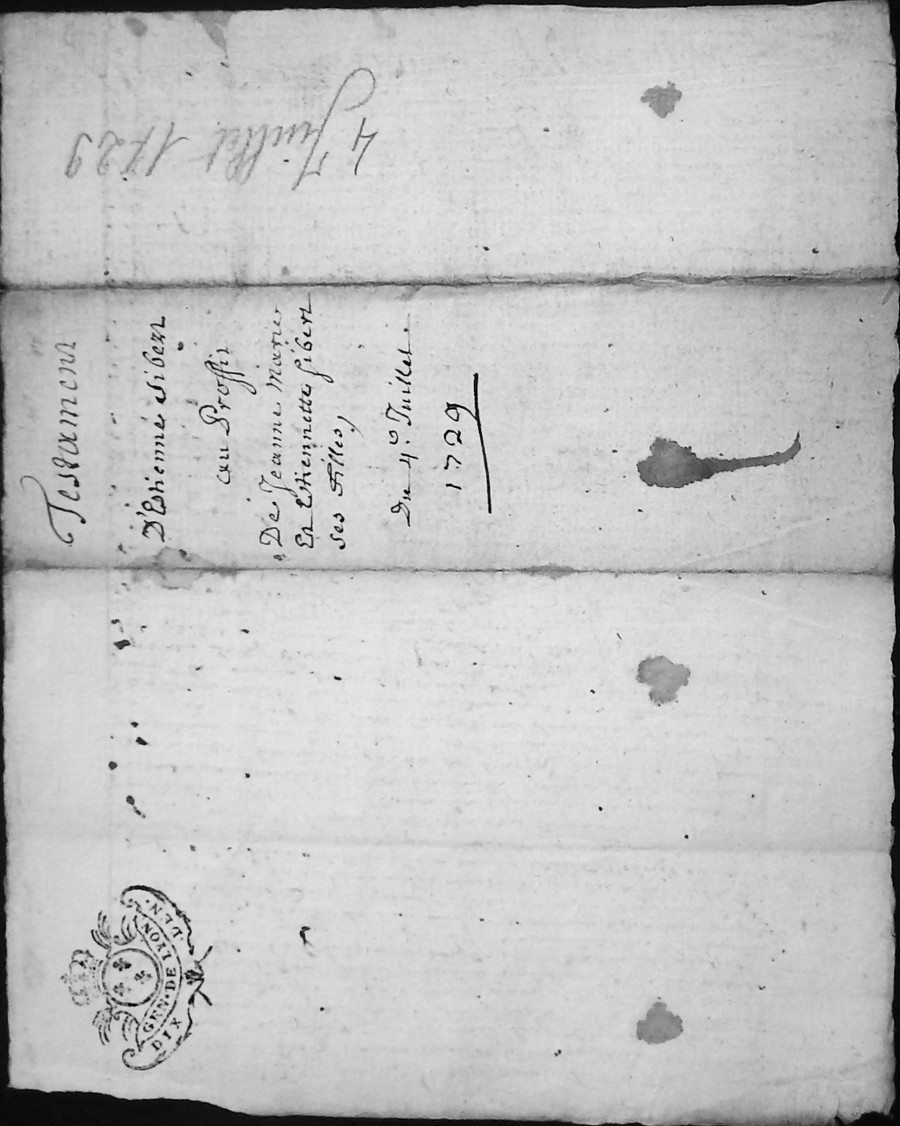 4 Juillet 1729
Testament
D'Estienne Gibert
au Proffit
De Jeanne Marie
Et Estiennette Gibert
Ses Filles,
Du 4e. Juillet.
1729
GEN. DE LYON
DIX DEN.